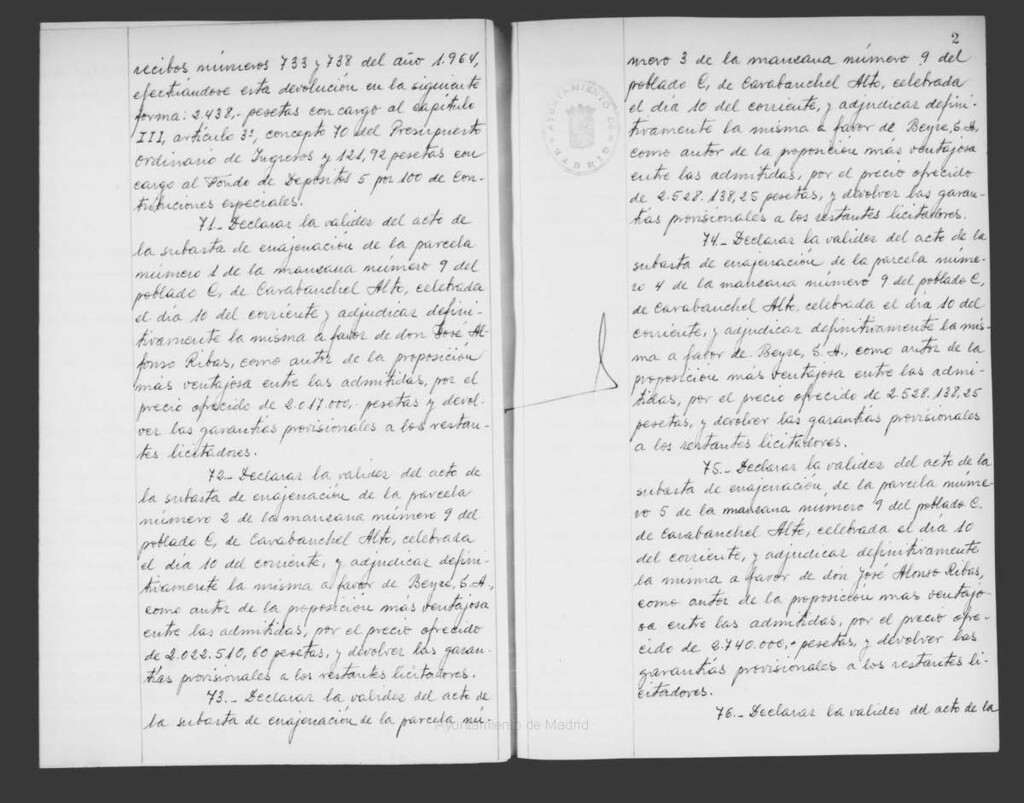 recibos números 733 y 738 del año 1.964,
efectuándose esta devolución en la siguiente
forma: 2.438,- pesetas con cargo al capítulo
III, artículo 3º, concepto 70 del Presupuesto
Ordinario de Ingresos y 121,92 pesetas con
cargo al Fondo de Depósitos 5 por 100 de Con-
tribuciones especiales.
71.- Declarar la validez del acto de
la subasta de enajenación de la parcela
número 1 de la manzana número 9 del
poblado C, de Carabanchel Alto, celebrada
el día 10 del corriente y adjudicar defini-
tivamente la misma a favor de don José Al-
fonso Ribas, como autor de la proposición
más ventajosa entre las admitidas, por el
precio ofrecido de 2.017.000,- pesetas y devol-
ver las garantías provisionales a los restan-
tes licitadores.
72.- Declarar la validez del acto de
la subasta de enajenación de la parcela
número 2 de la manzana número 9 del
poblado C, de Carabanchel Alto, celebrada
el día 10 del corriente, y adjudicar defini-
tivamente la misma a favor de Beyre, S.A.,
como autor de la proposición más ventajosa
entre las admitidas, por el precio ofrecido
de 2.022.510,60 pesetas, y devolver las garan-
tías provisionales a los restantes licitadores.
73.- Declarar la validez del acto de
la subasta de enajenación de la parcela nú-
2
mero 3 de la manzana número 9 del
poblado C, de Carabanchel Alto, celebrada
el día 10 del corriente, y adjudicar defini-
tivamente la misma a favor de Beyre, S.A.
como autor de la proposición más ventajosa
entre las admitidas, por el precio ofrecido
de 2.528.138,25 pesetas, y devolver las garan-
tías provisionales a los restantes licitadores.
74.- Declarar la validez del acto de la
subasta de enajenación de la parcela núme-
ro 4 de la manzana número 9 del poblado C,
de Carabanchel Alto, celebrada el día 10 del
corriente, y adjudicar definitivamente la mis-
ma a favor de Beyre, S. A., como autor de la
proposición más ventajosa entre las admi-
tidas, por el precio ofrecido de 2.528.138,25
pesetas, y devolver las garantías provisionales
a los restantes licitadores.
75.- Declarar la validez del acto de la
subasta de enajenación, de la parcela núme-
ro 5 de la manzana número 9 del poblado C.
de Carabanchel Alto, celebrada el día 10
del corriente, y adjudicar definitivamente
la misma a favor de don José Alonso Ribas,
como autor de la proposición mas ventajo-
sa entre las admitidas, por el precio ofre-
cido de 2.740.000,- pesetas, y devolver las
garantías provisionales a los restantes li-
citadores.
76.- Declarar la validez del acto de la
AYUNTAMIENTO DE MADRID
Ayuntamiento de Madrid